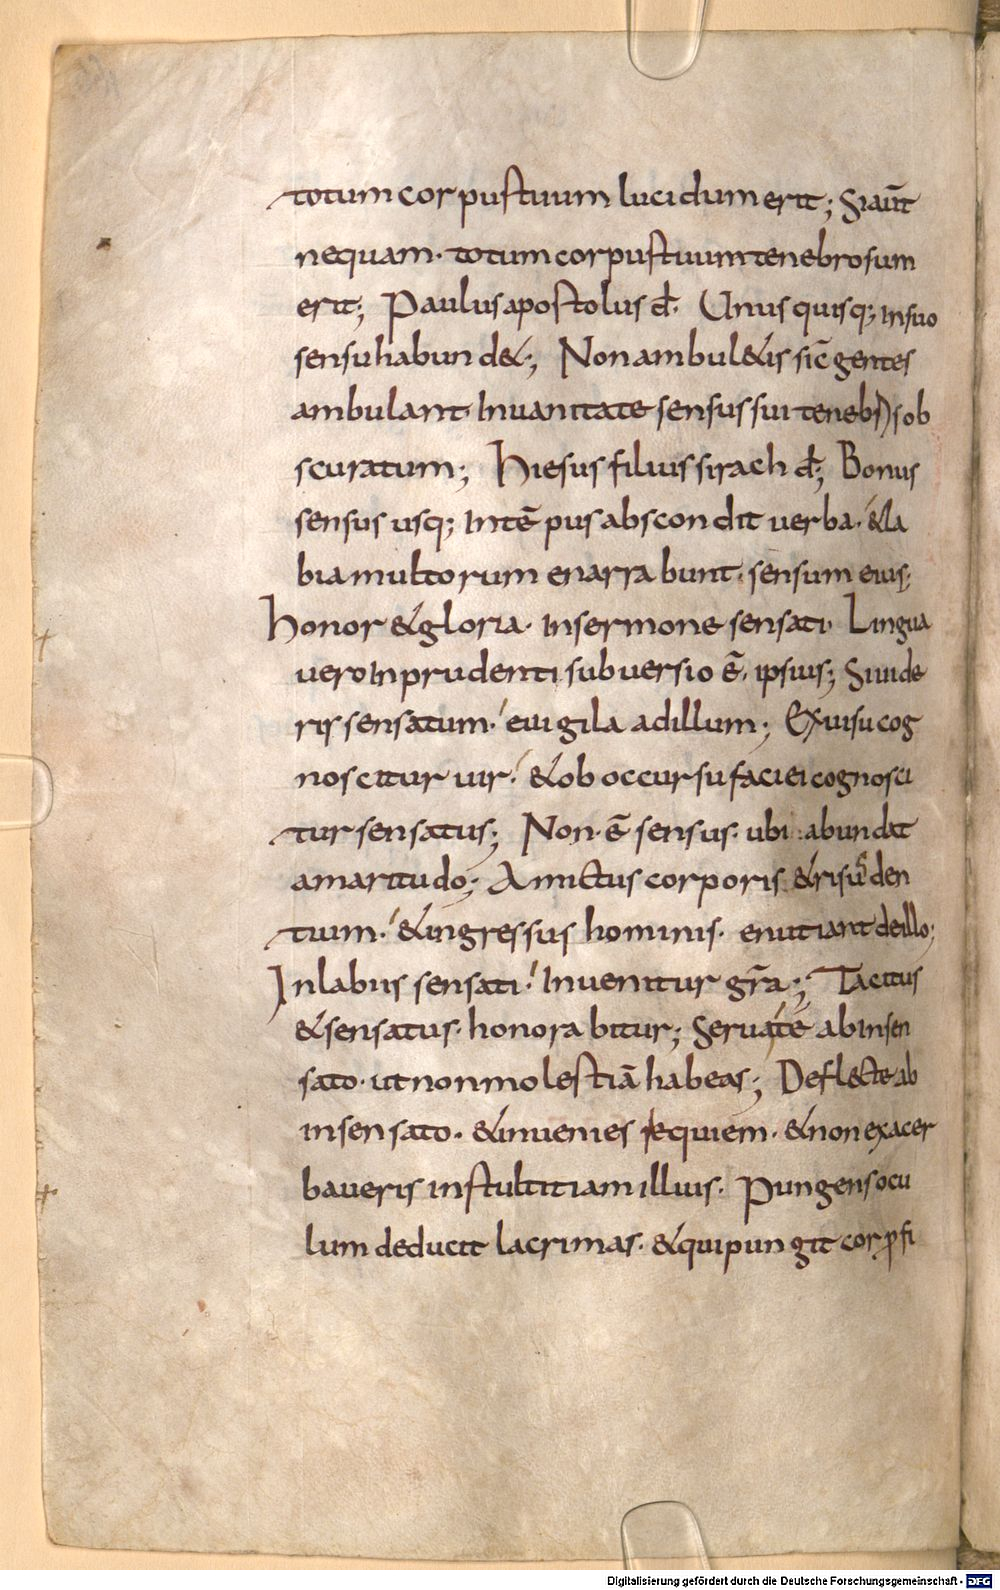 totum corpus tuum lucidum erit; Si aut̄
nequam · totum corpus tuum tenebrosum
erit; Paulus apostolus d̄ · Unusquisq; in suo
sensu habundet; Non ambuletis sic̄ gentes
ambulant · In uanitate sensus sui tenebris ob
scuratum; Hiesus filius sirach d̄; Bonus
sensus usq; in tē pus abscondit uerba · & la
bia multorum enarrabunt · sensum eius;
Honor & gloria · in sermone sensati · Lingua
uero Inprudenti subuersio ē · ipsius; Si uide
ris sensatum · euigila ad illum; Ex uisu cog
noscitur uir · & ob occursu faciei cognosci
tur sensatus; Non · ē sensus · ubi abundat
amaritudo; Amictus corporis & risus den
tium · & ingressus hominis · enutiant de illo;
In labiis sensati · Inuenitur gr̄a; Tacitus
& sensatus · honorabitur; Serua te ab insen
sato · ut non molestiā habeas; Deflecte ab
insensato · & inuenies requiem · & non exacer
baueris in stultitiam illius · Pungens ocu
lum deducit lacrimas · & qui pungit cor ꝓfi
Digitalisierung gefördert durch die Deutsche Forschungsgemeinschaft - DFG